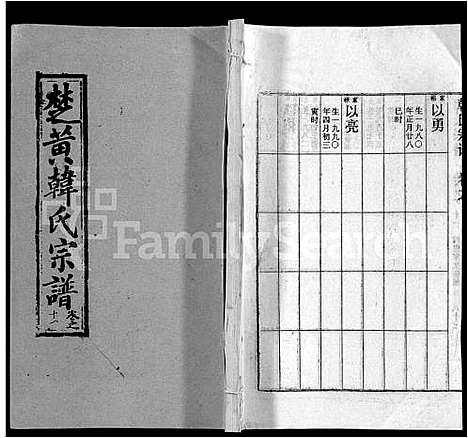 楚黄韓氏宗譜
卷之
十一
以勇
生一九八〇
年正月廿八
巳时
以亮
生一九九〇
年四月初三
寅时
FamilySearch